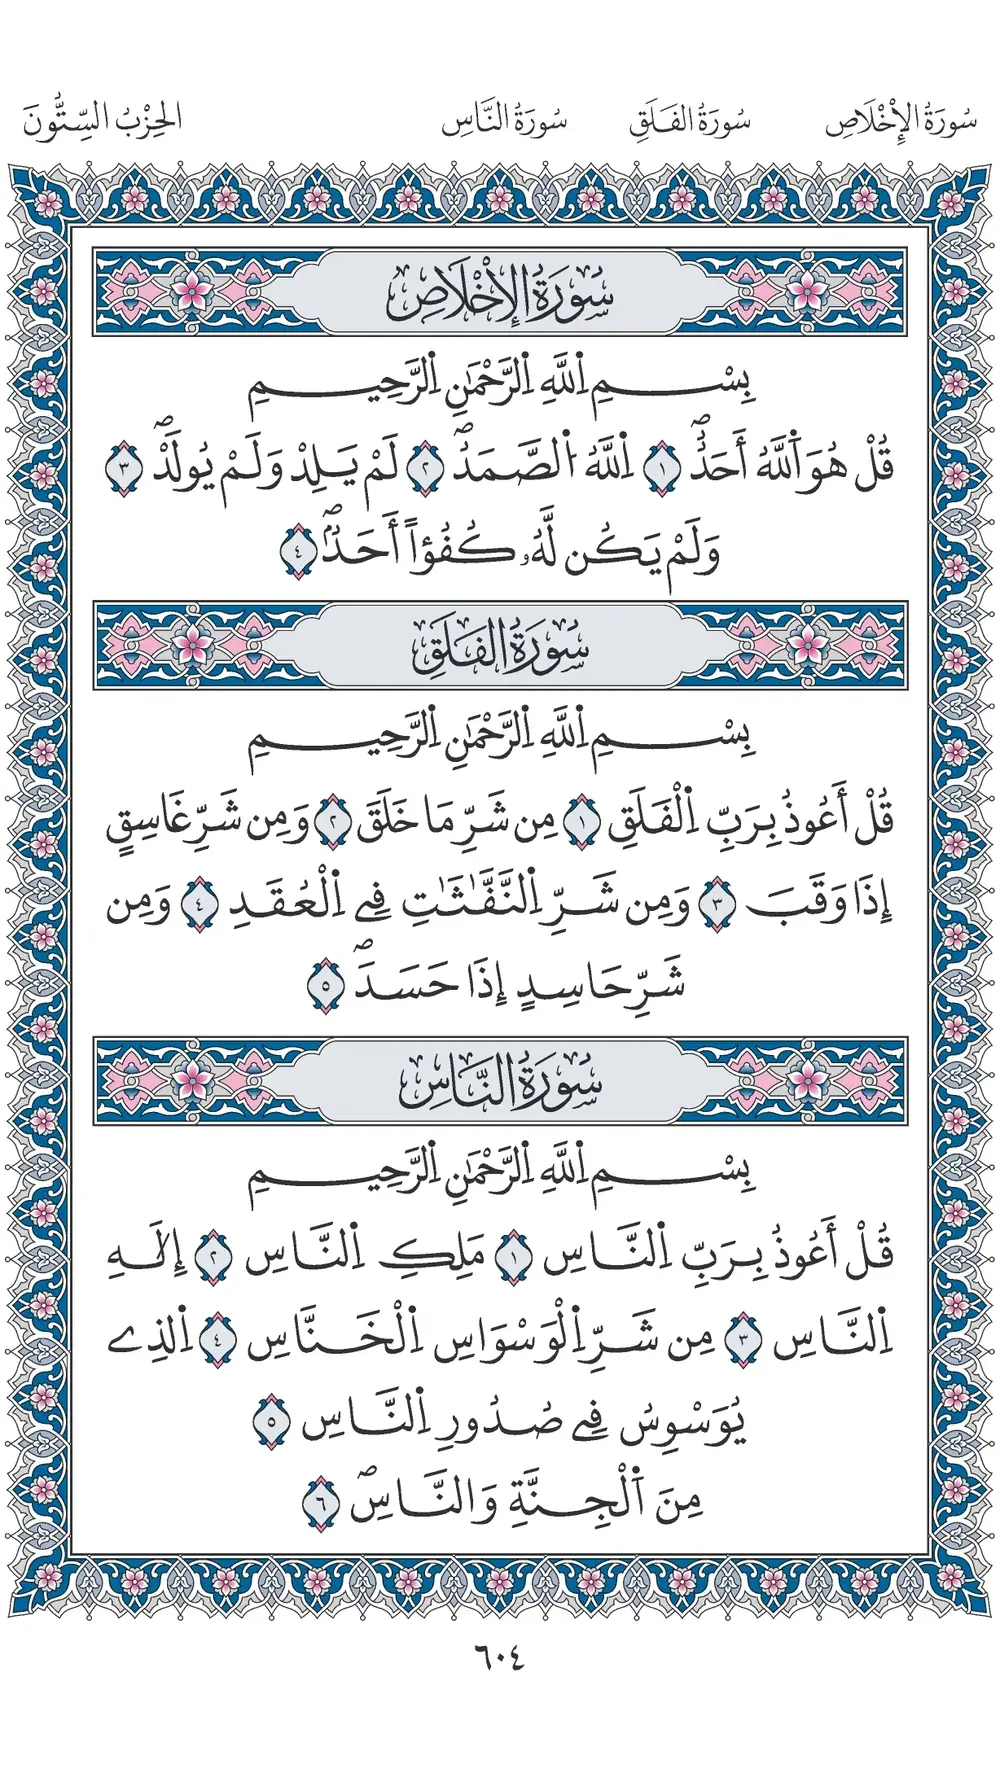 سُورَةُ الإِخْلَاصِ سُورَةُ الفَلَقِ سُورَةُ النَّاسِ الحِزْبُ السِّتُّونَ
سُورَةُ الإِخْلَاصِ
بِسْمِ اِ۬للَّهِ اِ۬لرَّحْمَٰنِ اِ۬لرَّحِيمِ
قُلْ هُوَ اَ۬للَّهُ أَحَدٌۖ ١ اِ۬للَّهُ اُ۬لصَّمَدُۖ ٢ لَمْ يَلِدْ وَلَمْ يُولَدْۖ ٣
وَلَمْ يَكُن لَّهُۥ كُفُؤاً أَحَدٌۖ ٤
سُورَةُ الفَلَقِ
بِسْمِ اِ۬للَّهِ اِ۬لرَّحْمَٰنِ اِ۬لرَّحِيمِ
قُلْ أَعُوذُ بِرَبِّ اِ۬لْفَلَقِ ١ مِن شَرِّ مَا خَلَقَ ٢ وَمِن شَرِّ غَاسِقٍ
إِذَا وَقَبَ ٣ وَمِن شَرِّ اِ۬لنَّفَّٰثَٰتِ فِے اِ۬لْعُقَدِ ٤ وَمِن
شَرِّ حَاسِدٍ إِذَا حَسَدَۖ ٥
سُورَةُ النَّاسِ
بِسْمِ اِ۬للَّهِ اِ۬لرَّحْمَٰنِ اِ۬لرَّحِيمِ
قُلْ أَعُوذُ بِرَبِّ اِ۬لنَّاسِ ١ مَلِكِ اِ۬لنَّاسِ ٢ إِلَٰهِ
اِ۬لنَّاسِ ٣ مِن شَرِّ اِ۬لْوَسْوَاسِ اِ۬لْخَنَّاسِ ٤ اِ۬لذِے
يُوَسْوِسُ فِے صُدُورِ اِ۬لنَّاسِ ٥
مِنَ اَ۬لْجِنَّةِ وَالنَّاسِۖ ٦
٦٠٤